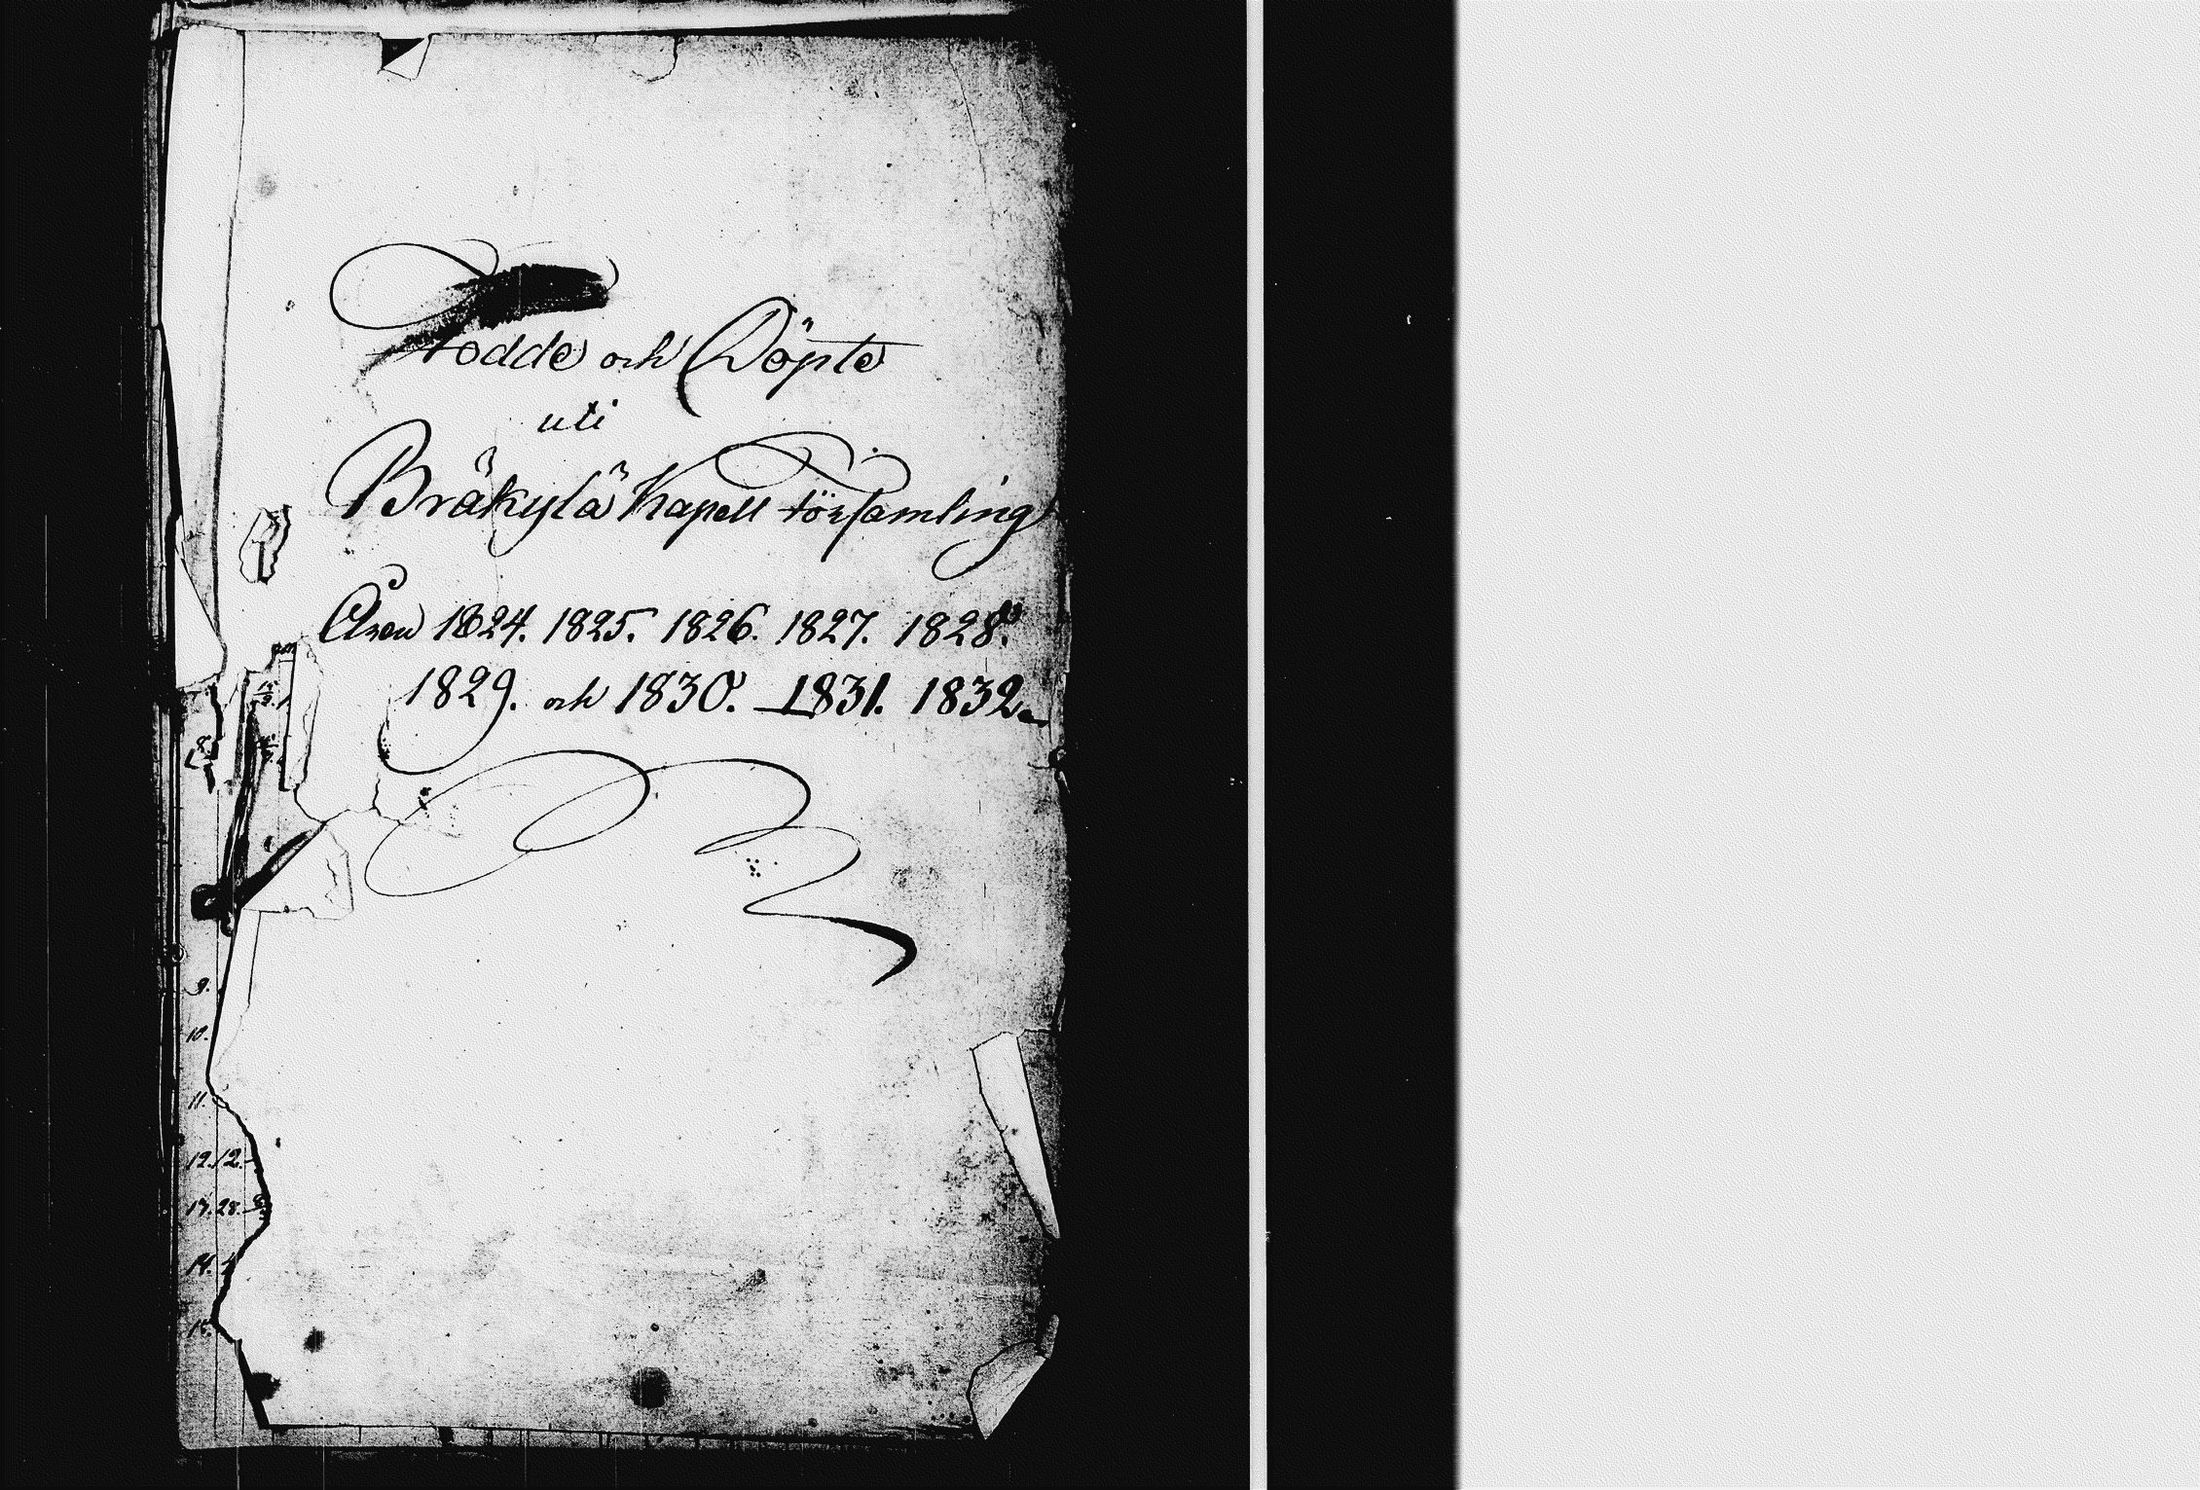 Födde och Döpte
uti
Bräkylä Kapell församling
Åren 1824. 1825. 1826. 1827. 1828.
1829. och 1830. 1831. 1832.
9.
10.
11.
12. 12.
13. 28.
14.
15.